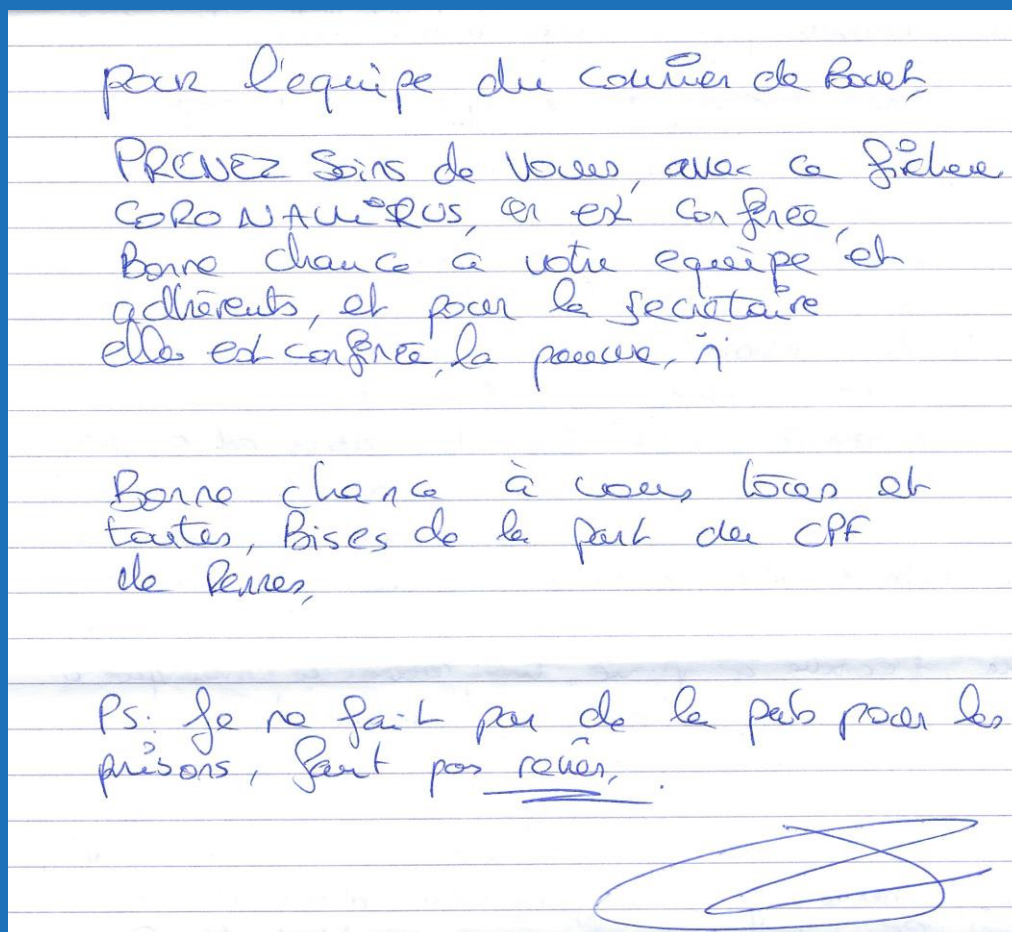 pour l'equipe du courrier de Bovet,
PRENEZ Soins de vous, avec ce fichu
CORONAVIRUS, on est confinée,
Bonne chance a votre equipe et
adhérents, et pour la secretaire
elle est confinée, la pauvre,
Bonne chance à vous tous et
toutes, Bises de la part du CPF
de Rennes,
Ps: Je ne fait pas de la pub pour les
prisons, faut pas rêver,